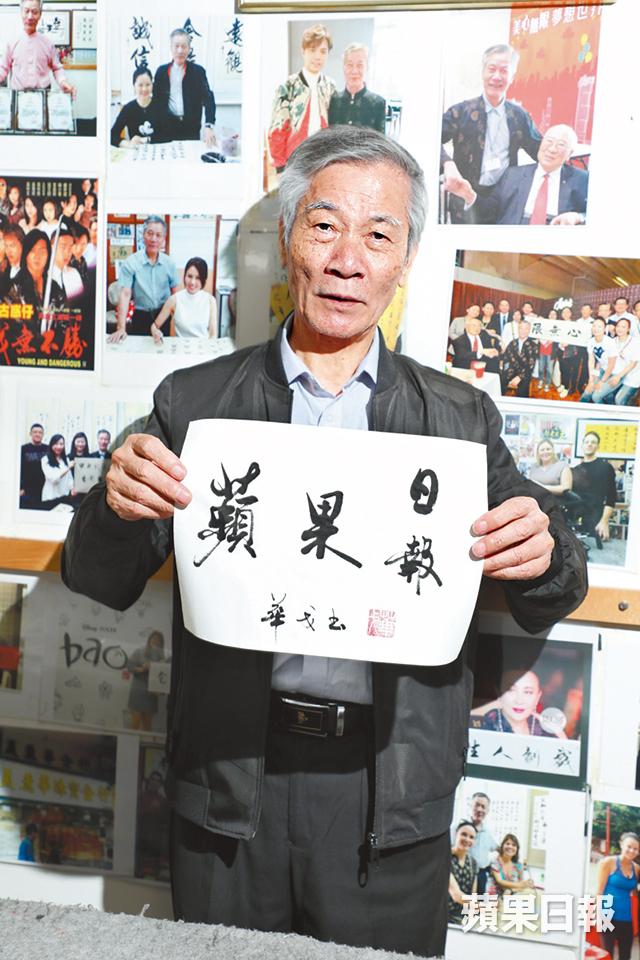 誠信
古惑仔
戰無不勝
YOUNG AND DANGEROUS
限無心
蘋果日報
華戈书
Disney PIXAR
bao
蘋果日報